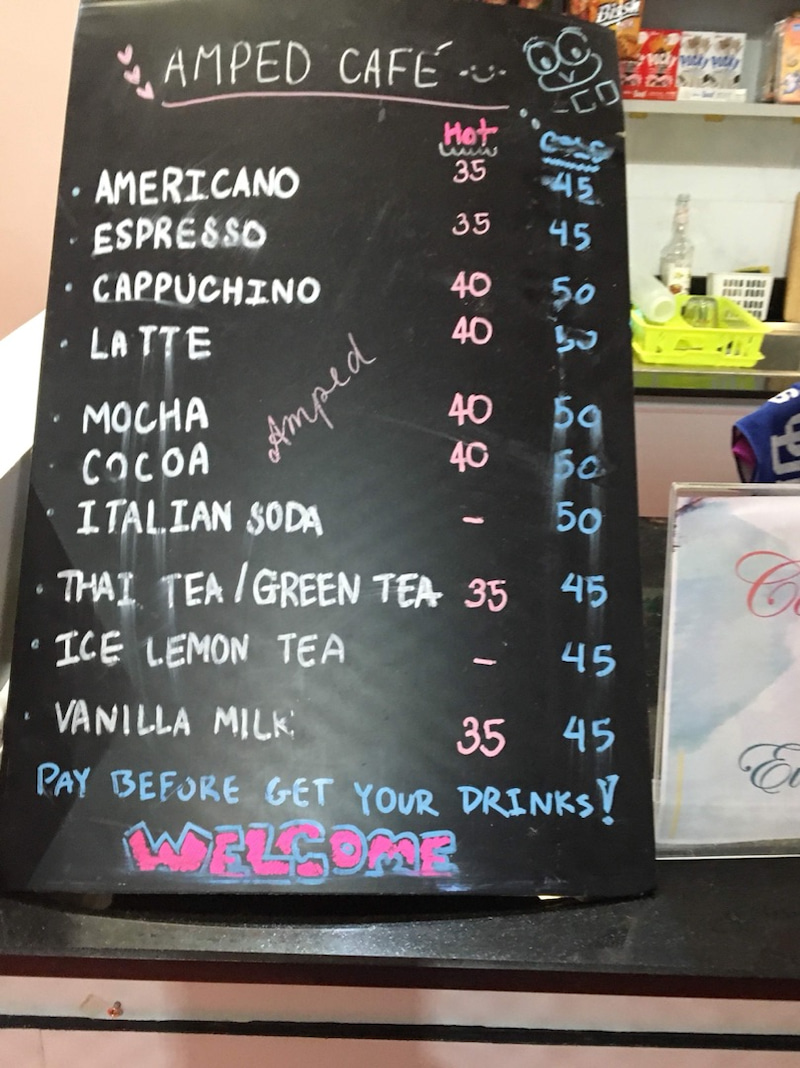 AMPED CAFÉ
Hot COLD
AMERICANO 35 45
ESPRESSO 35 45
CAPPUCHINO 40 50
LATTE 40 50
Amped
MOCHA 40 50
COCOA 40 50
ITALIAN SODA - 50
THAI TEA/GREEN TEA 35 45
ICE LEMON TEA - 45
VANILLA MILK 35 45
PAY BEFORE GET YOUR DRINKS!
WELCOME
POCKY POCKY POCKY